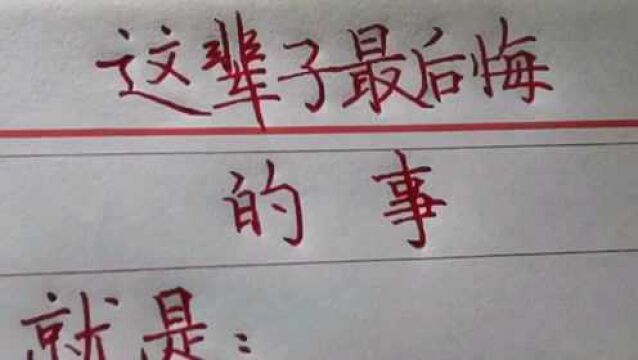 这辈子最后悔
的事
就是：